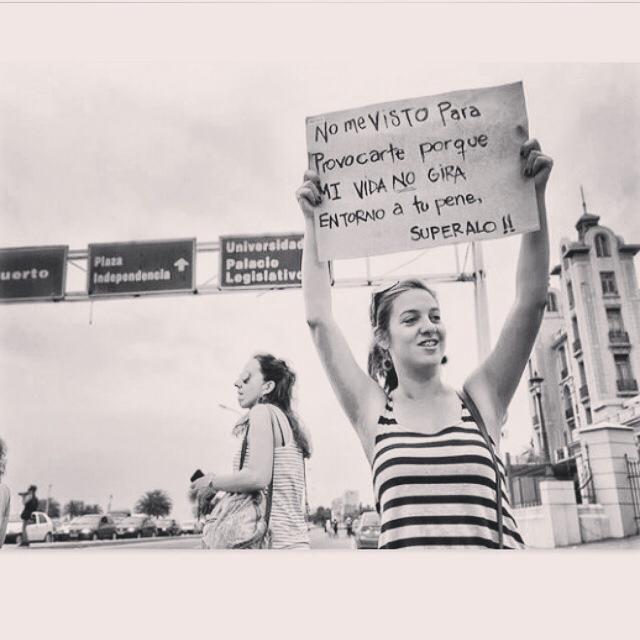 No me VISTO Para
Provocarte porque
MI VIDA NO GIRA
ENTORNO a tu pene,
SUPERALO !!
uerto
Plaza
Independencia
Universidad
Palacio
Legislativo